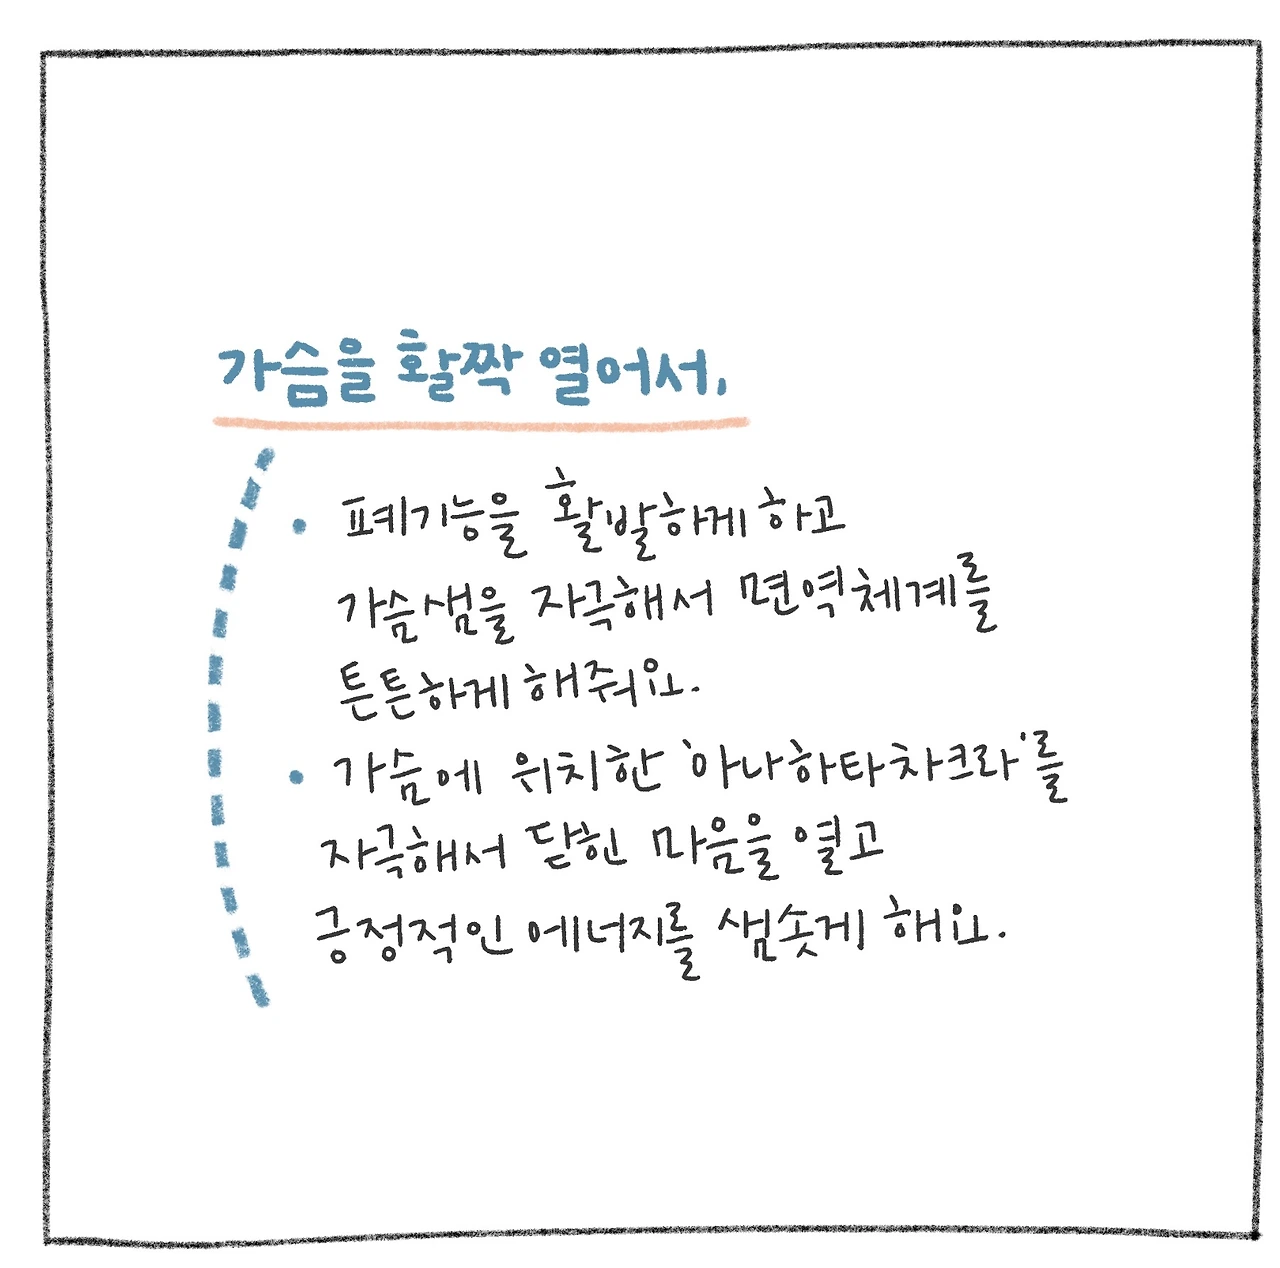 가슴을 활짝 열어서,
• 폐기능을 활발하게 하고
가슴샘을 자극해서 면역체계를
튼튼하게 해줘요.
• 가슴에 위치한 '아나하타차크라'를
자극해서 닫힌 마음을 열고
긍정적인 에너지를 샘솟게 해요.